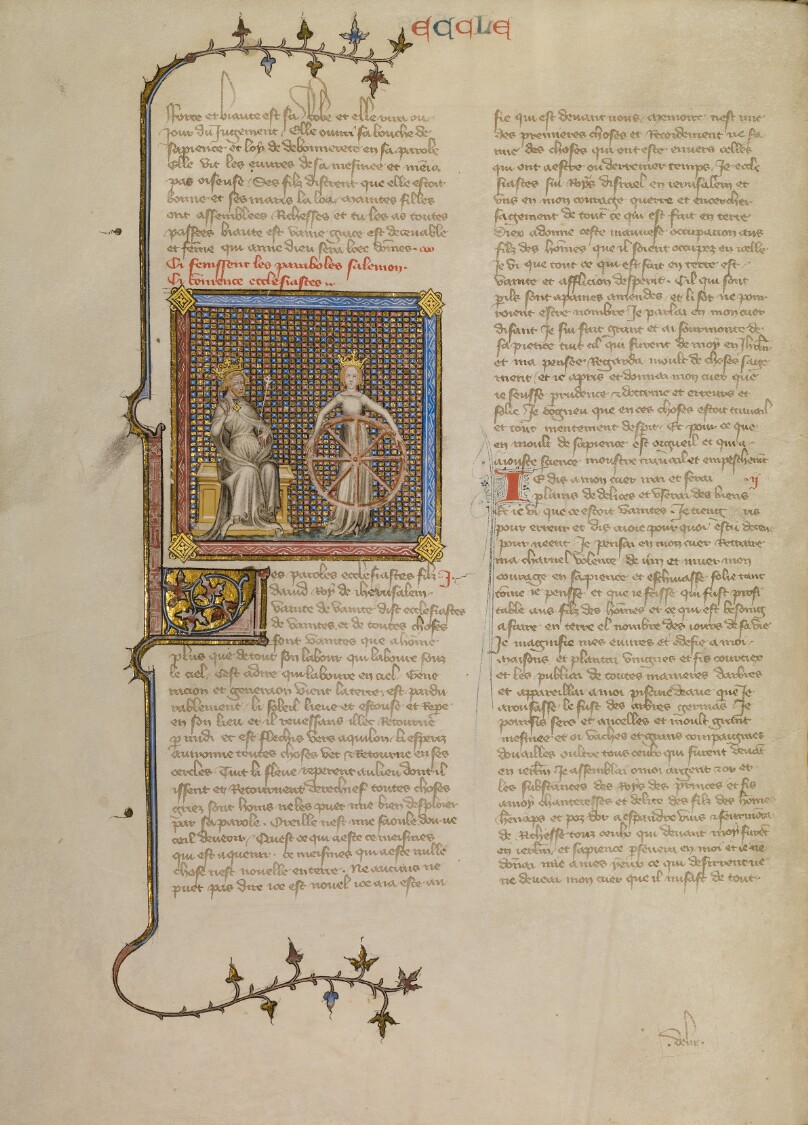 ECCLE
Force et biaute est sa robe et elle rira ou
jour du jugement. Elle ouvri sa bouche de
sapience et loy de debonnerete en sa parole
Elle vit les euvres de sa mesniee et
pas oiseuse. Ses filz distrent que elle estoit
bonne et ses maris la loa. maintes filles
ont assemblees Richesses et tu les as toutes
passees biaute est vaine grace est decevable
et feme qui aime dieu sera loee
Ci fenissent les paraboles salemon.
Ci comence ecclesiastes
Des paroles ecclesiastes filz I.
david Roy de iherusalem.
vanite de vanite dist ecclesiastes
de vanites et de toutes choses
sont vanites que a home
plus que de tout son labour qui laboure souz
le ciel. Cest adire qui laboure en ciel. Gene
racion et generaon vient la terre est pardu
rablement. li soleil lieve et couche et Repe
en son lieu et il renessans illec Retourne
p midi et est flechis vers aquilon. li esperiz
avironne toutes choses vet et Retourne en ses
cercles. Tuit li fleuve Reperent au lieu dont il
issent et Retournent derechief toutes choses
griez sont homs ne les puet mie bien desploier
par sa parole. Oreille nest mie saoule doir ne
oeil de veoir. Quest ce qui a este ce meismes
qui est a avenir. ce meismes qui a este nulle
chose nest novelle en terre. Ne aucuns ne
puet pas dire ice est novel ice a ia este an
sie qui est devant nous. memoire nest mie
des premieres choses et Recordement ne sa
mie des choses qui ont este envers celles
qui ont a estre ou derrenier temps. Je eccle
siastes fui Roys disrael en ierusalem et
vns en mon courage querre et encerchier
sagement de tout ce qui est fait en terre
Diex a donne ceste mauvese occupacion aus
filz des homes que il soient occupez en icelle
Je vi que tout ce qui est fait en terre est
vanite et affliction desperit. Cil qui sont
pvers sont apaines amendes. et li sot ne pour
roient estre nombre Je parlai en mon cuer
disant Je sui fait grant et ai sourmonte de
sapience tuit cil qui furent de moy en
et ma pensee Regarda moult de choses sage
ment. et ie apris et donnai mon cuer que
ie seusse prudence et doctrine et erreurs et
folie. Je cogneu que en ces choses estoit travail
et tout mentement desprit. Et pour ce que
en moult de sapience est orgueil et qui a
aiouste science moustre travail et empeschement
Je dis a mon cuer irai et serai ij
plains de delices et userai des biens
Et ie vi que ce estoit vanites. Je tieng ris
pour erreur et dis a ioie pour quoi es tu
pour neent. Je pensai en mon cuer Retraire
ma charnel volente de vin et muer mon
courage en sapience et eschivasse folie tant
come ie pensse et que ie seusse qui fust profi
table aus filz des homes et ce qui est besoing
a faire en terre el nombre des iours de sa vie
Je magnifie mes euvres et edefie a moi
maisons et plantai vingnes et fis courtiex
et les publiai de toutes manieres darbres
et appareillai a moi piscine deaue que Je
arousasse le fust des arbres germans Je
poursis sers et ancelles et moult grant
mesniee et os vaches et grans compaignies
douailles oultre touz ceulx qui furent devat
en ierlm Je assemblai a moi argent et or et
les substances des Roys des princes et fis
a moy chanteresses et delice des filz des home
henaps et poz dor a espandre vins
de Richesse touz ceulx qui devant moy furet
en ierlm et sapience psevera en moi et ie ne
donai mie a mes yeux ce qui desirrent ne
ne deveai mon cuer que il nusast de tout